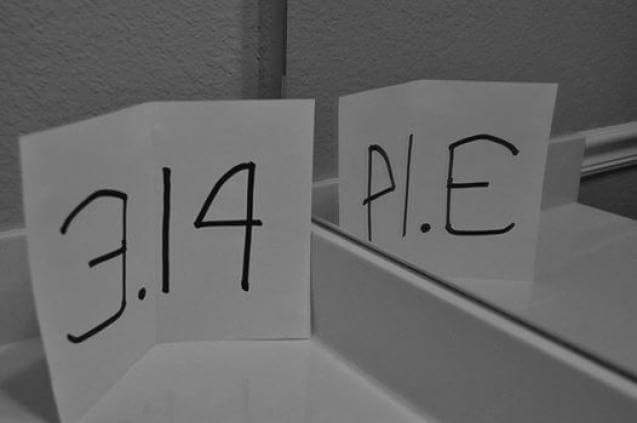 3.14
PI.E